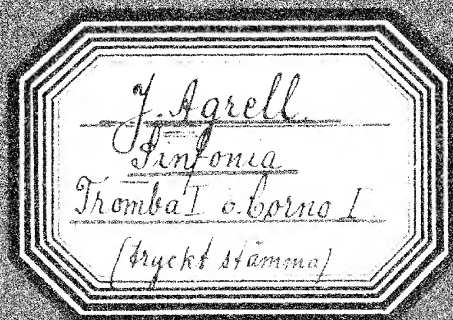 J. Agrell.
Sinfonia
Tromba I o. Corno I
(tryckt stämma)